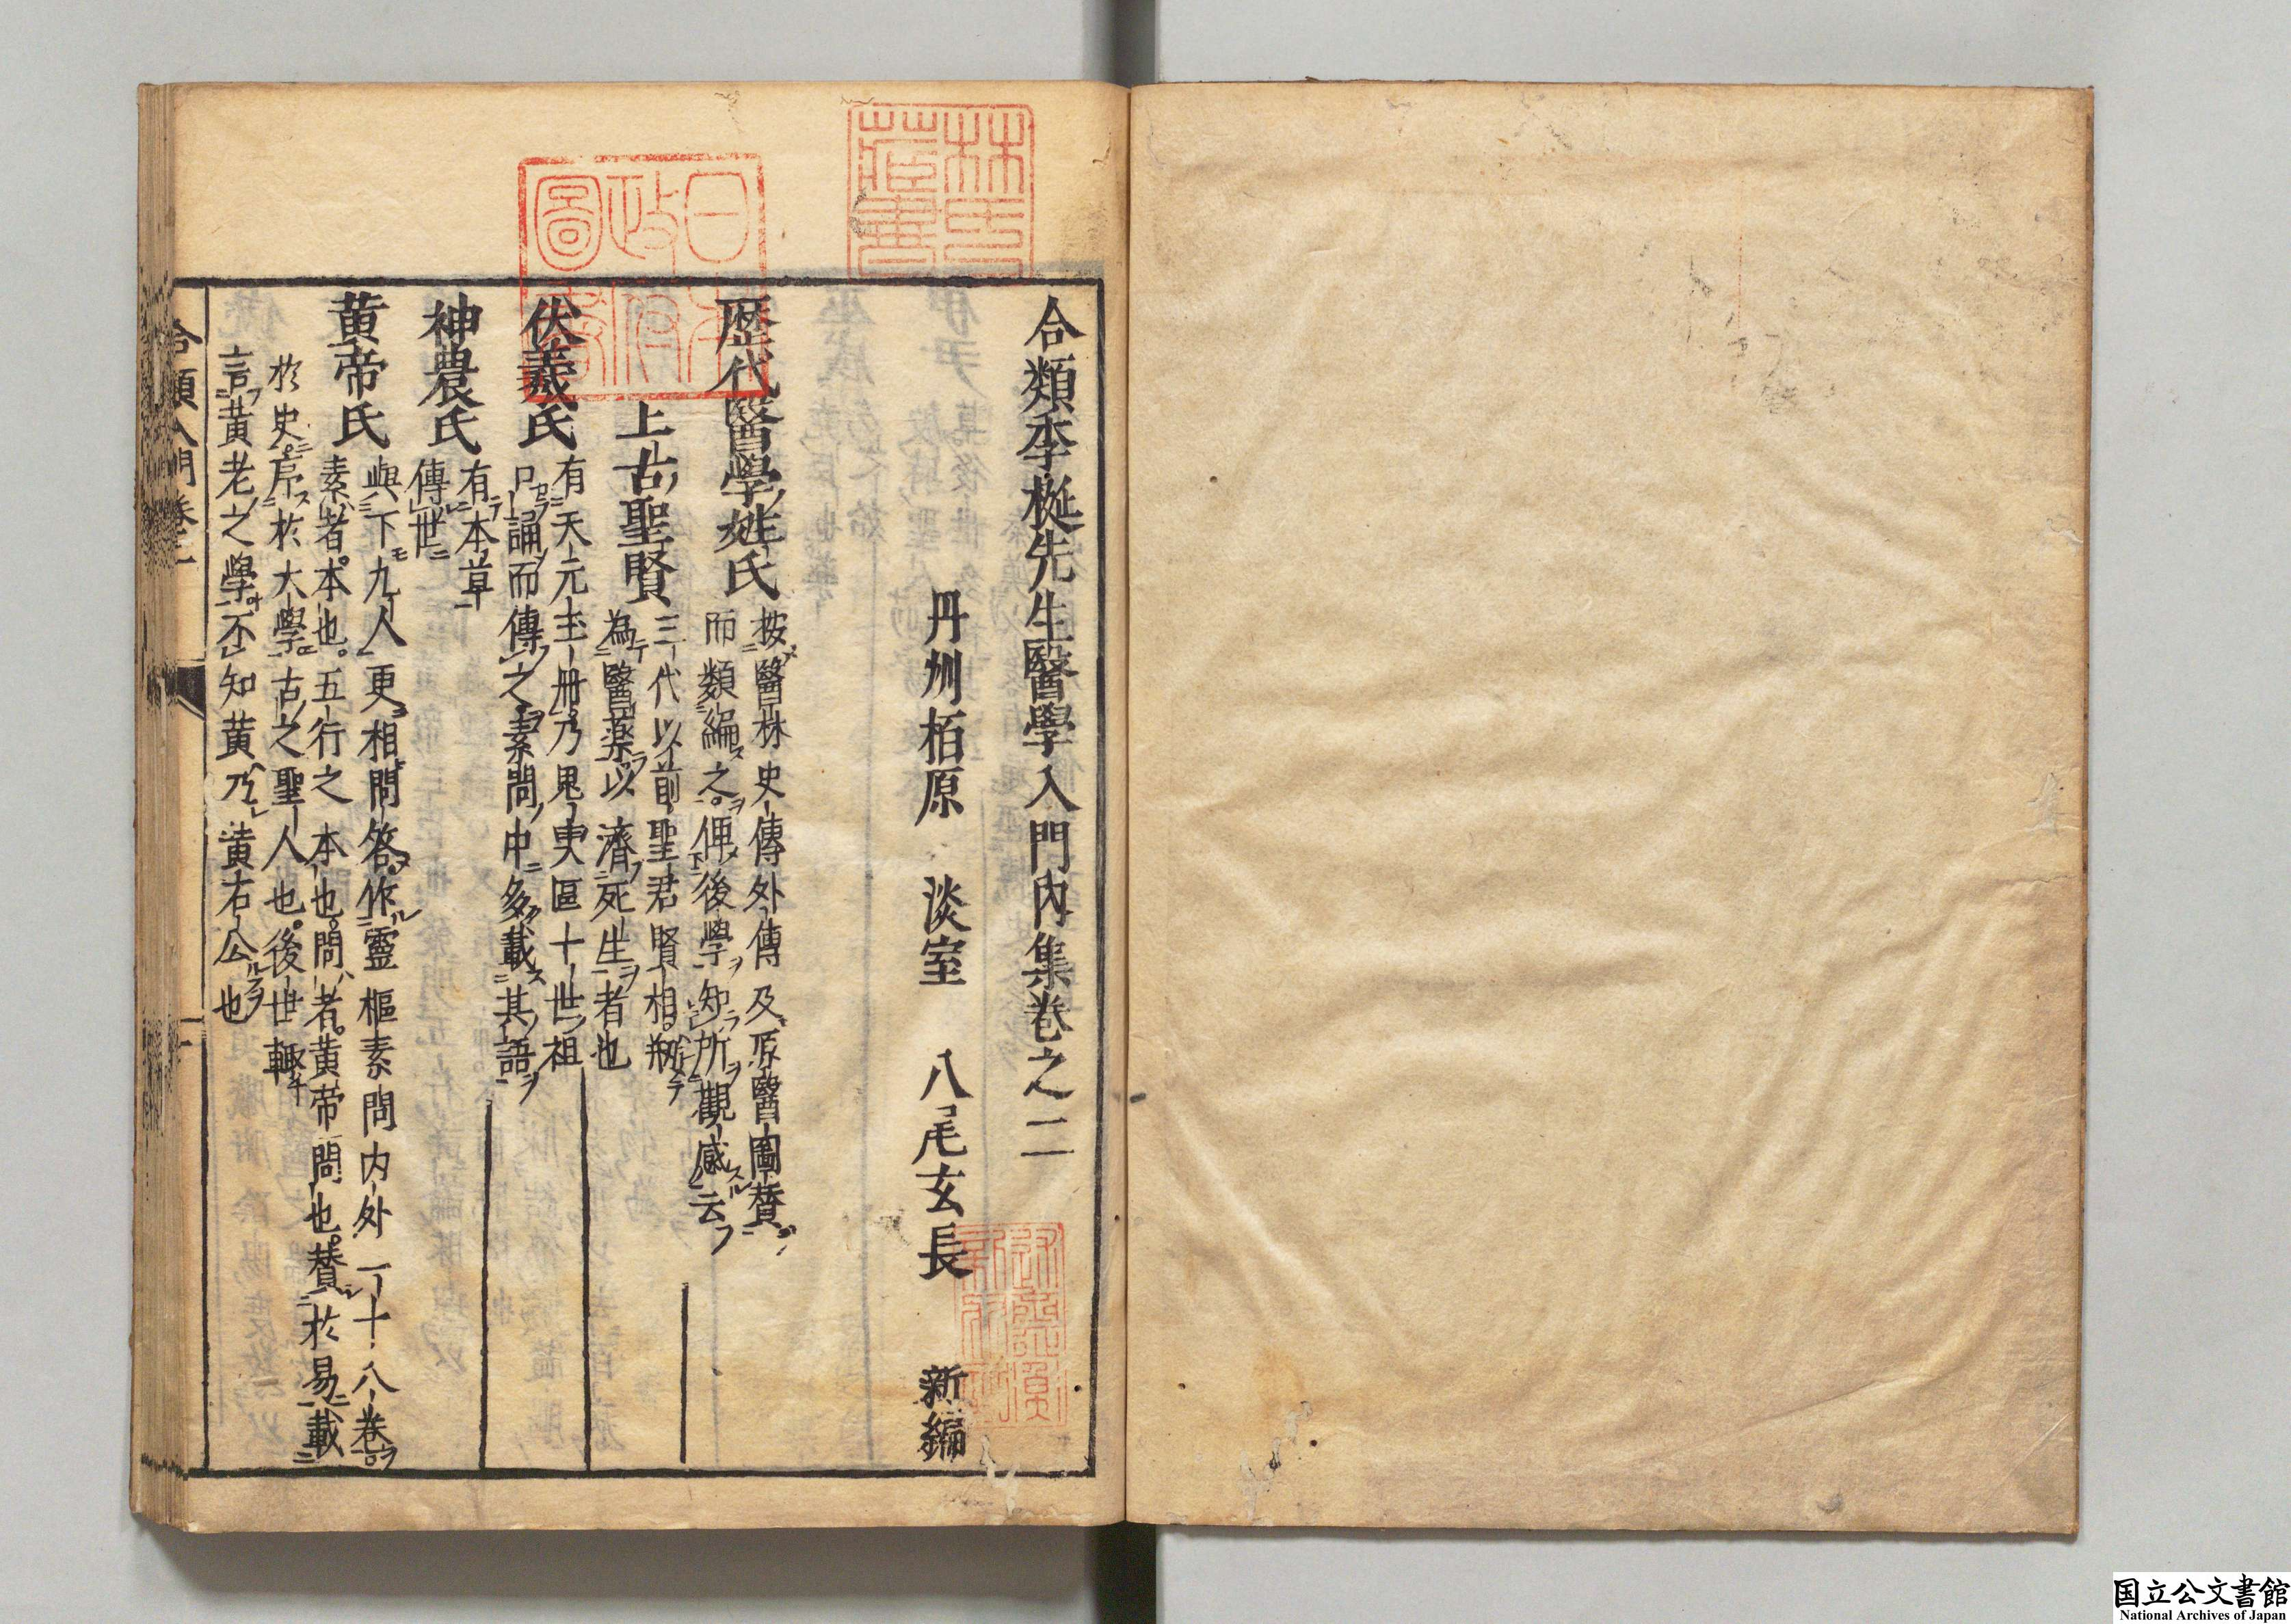 合類季梴先生醫學入門內集卷之二
丹州栢原　淡室　八尾玄長　新編
歷代醫學姓氏
按醫林史傳外傳及原醫圖賛
而類編之俾後學知所觀感云
上古聖賢
三代以前聖君賢相剏
為醫藥以濟死生者也
伏羲氏
有天元玉册乃鬼臾區十世祖
口誦而傳之素問中多載其語
神農氏
有本草
傳世
黄帝氏
與下九人更相問答作靈樞素問内外一十八卷
素者本也五行之本也問者黄帝問也賛於易載
於史序於大學古之聖人也後世輒
言黄老之學不知黄乃黄石公也
合類入門卷二
林氏藏書
日本政府圖書
国立公文書館
National Archives of Japan